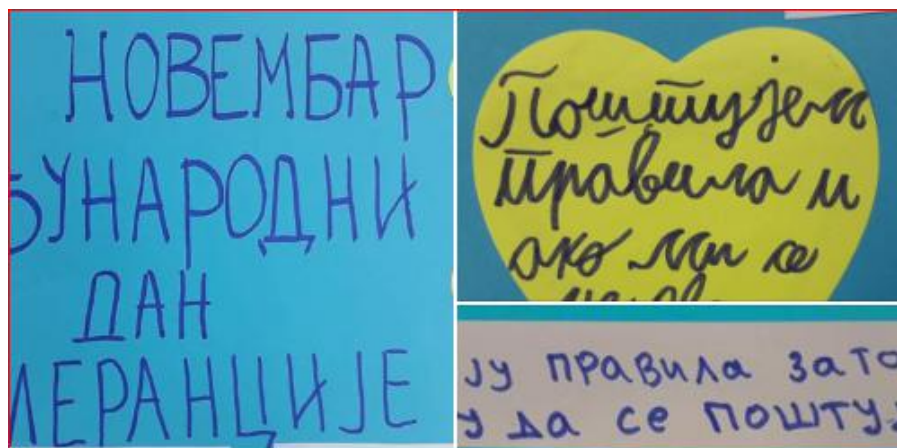 НОВЕМБАР
ЂУНАРОДНИ
ДАН
ЛЕРАНЦИЈЕ
Поштујем
правила и
ако ми се
ју правила зато
у да се поштуј